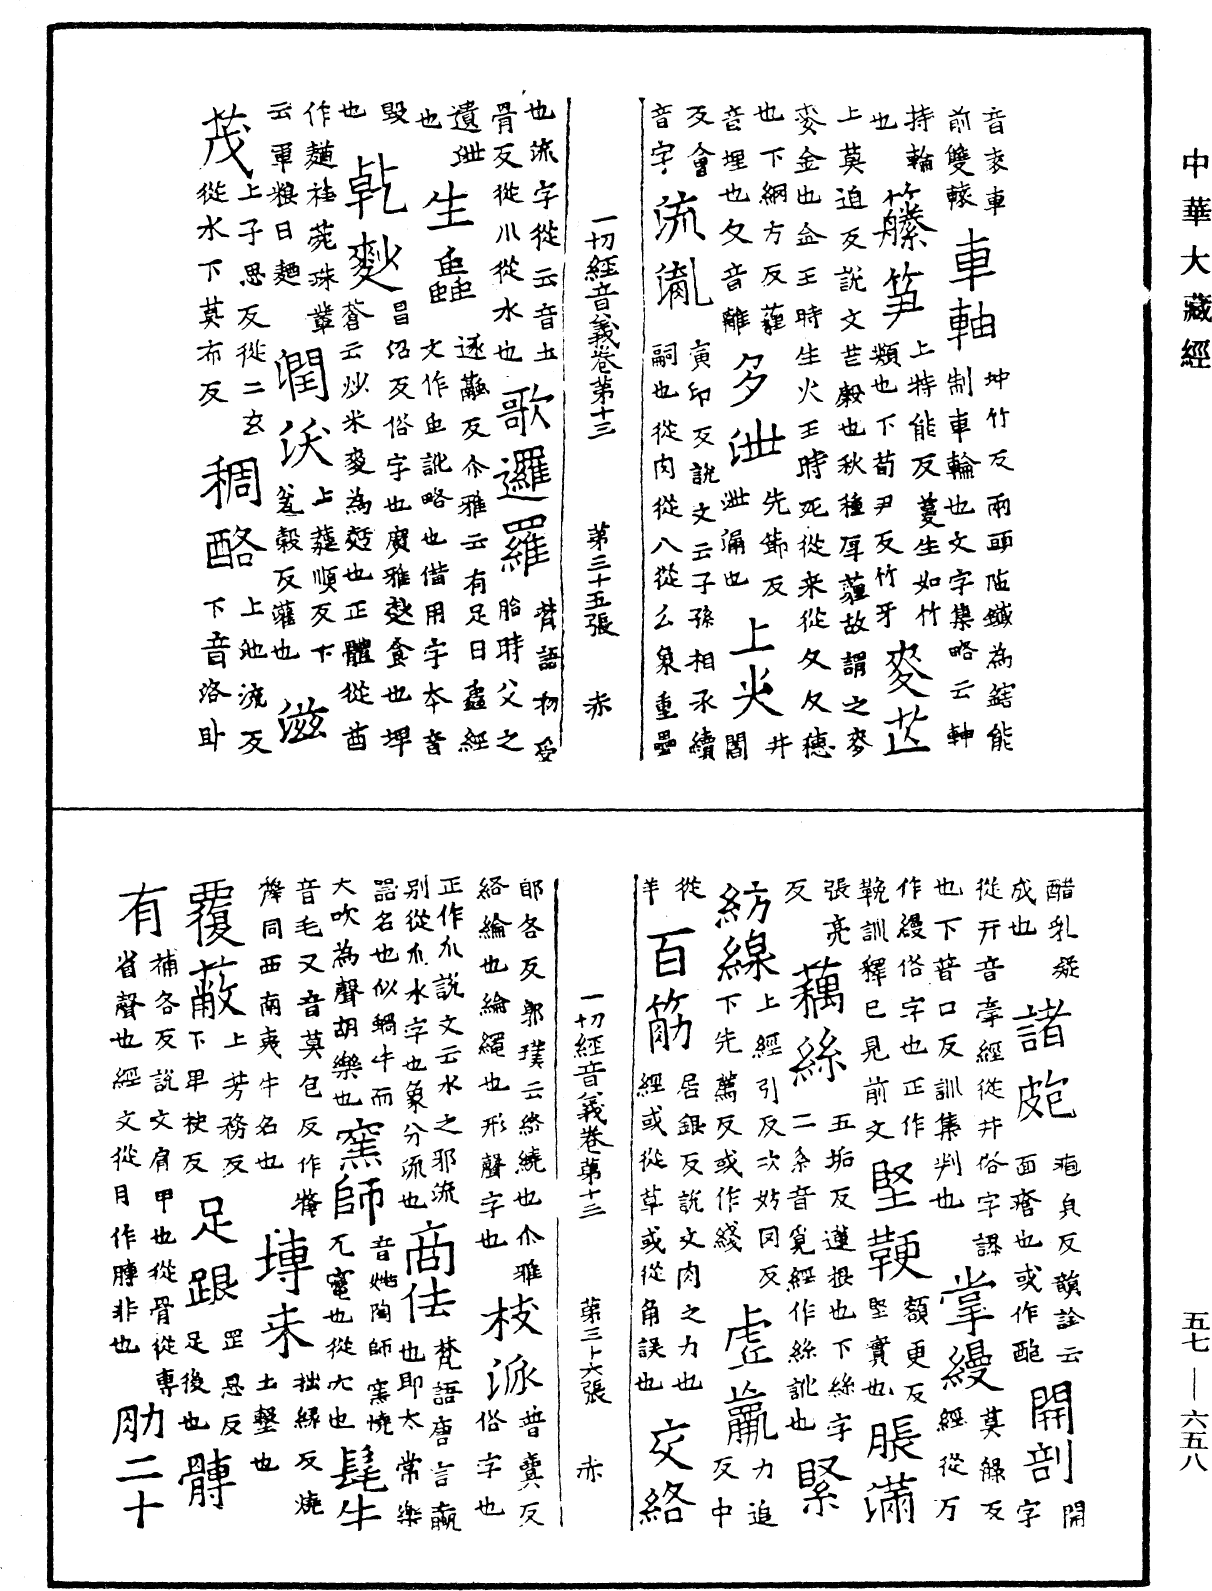 中華大藏經
音衮車
前雙轅
車軸
坤竹反兩頭陷鐵為鎋能
制車輪也文字集略云軸
持輪
也
籐笋
上特能反蔓生如竹
類也下荀尹反竹牙
麥芷
上莫迫反說文芒穀也秋種厚薶故謂之麥
麥金也金王時生火王時死從来從夂夂穗
也下網方反薶
音埋也夂音雖
多泄
先節反
泄漏也
上火
井
閻
反會
音字
流胤
寅印反說文云子孫相承續
嗣也從肉從八從幺象重疊
一切經音義卷第十三
第三十五張
赤
也流字從云音土
骨反從川從水也
歌邏羅
梵語初受
胎時父之
遺泄
也
生蟲
逐融反尒雅云有足曰蟲經
文作虫訛略也借用字本音
毀
也
乾麨
昌紹反俗字也廣雅麨食也埤
蒼云炒米麥為麨也正體從酋
作麵桂苑珠叢
云軍粮曰麵
潤沃
上蕤順反下
㷟穀反灌也
滋
茂
上子思反從二玄
從水下莫布反
稠酪
上池流反
下音洛卧
醋乳凝
成也
諸皰
疱皃反韻詮云
面瘡也或作䩝
開剖
開
字
從开音牽經從井俗字誤
也下普口反訓集判也
掌縵
莫綠反
經從万
作縵俗字也正作
鞔訓釋已見前文
堅鞕
額更反
堅實也
脹滿
張亮
反
藕絲
五垢反蓮根也下絲字
二糸音覓經作絲訛也
緊
紡線
上經引反次妨罔反
下先薦反或作綫
虛羸
力追
反中
從
羊
百筋
居銀反說文肉之力也
經或從草或從角誤也
交絡
一切經音義卷第十三
第三十六張
赤
郎各反郭璞云絡繞也尒雅
絡綸也綸繩也形聲字也
枝派
普賣反
俗字也
正作𠂢說文云水之邪流
別從𠂢水字也象分流也
商佉
梵語唐言蠃
也即太常樂
器名也似蝸牛而
大吹為聲胡樂也
窯師
音姚陶師窯燒
瓦竈也從穴也
髦牛
音毛又音莫包反作犛
犛同西南夷牛名也
塼来
拙緣反燒
土墼也
覆蔽
上芳務反
下卑袂反
足跟
罡恩反
足後也
髆
補各反說文肩甲也從骨從專
省聲也經文從月作膊非也
肋二十
有
五七—六五八